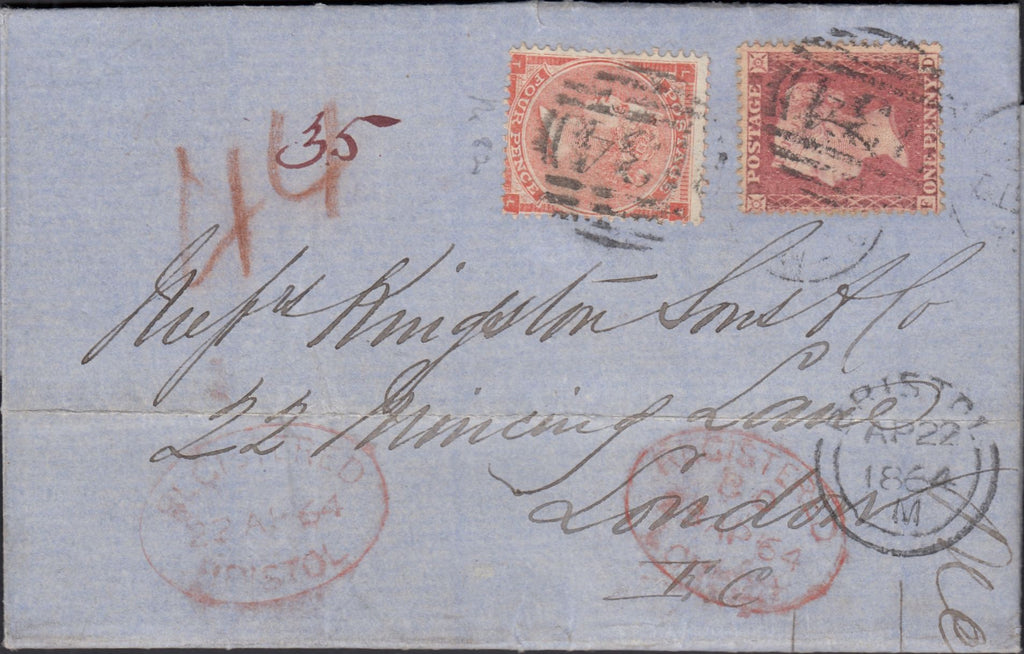 L L
FOUR PENCE
POSTAGE
D
ONE PENNY
F
35
44
Messrs Kingston Sons & Co
22 Mincing Lane
London
E.C.
BRISTOL
AP 22
1864
M
REGISTERED
22 AP 64
BRISTOL
REGISTERED
AP 64